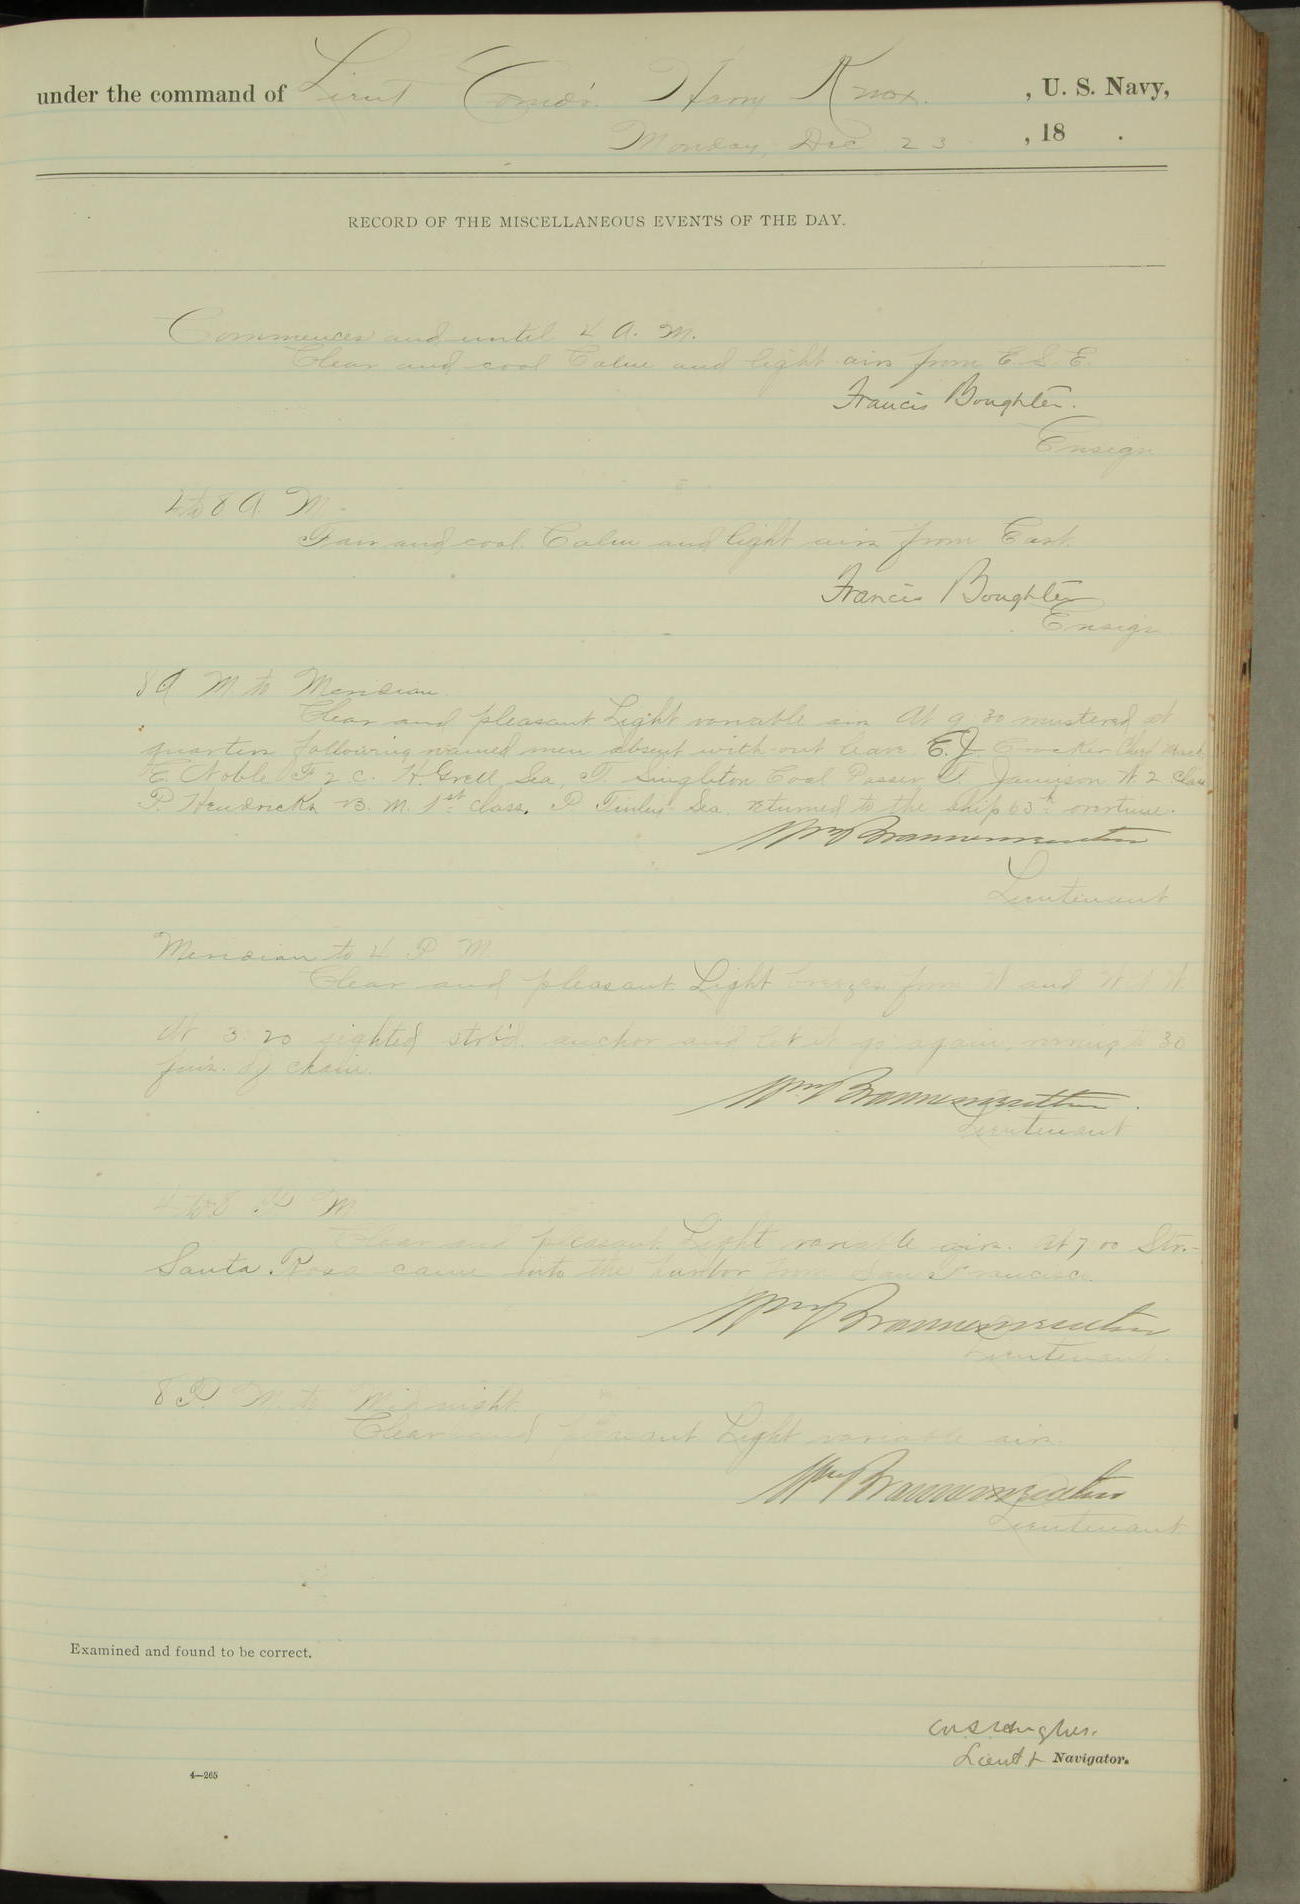 under the command of Lieut Comd'r. Harry Knox. , U. S. Navy,
Monday, Dec 23 , 18 .
RECORD OF THE MISCELLANEOUS EVENTS OF THE DAY.
Commences and until 4 A. M.
Clear and cool Calm and light airs from E. S. E.
Francis Boughter.
Ensign
4 to 8 A. M.
Fair and cool. Calm and light airs from East.
Francis Boughter
Ensign
8 A M to Meridian.
Clear and pleasant. Light variable airs At 9 30 mustered at
quarters following named men absent with-out leave E. J. Crocker Chief Mach
E. Noble F 2 C. H. Grell Sea, T. Singleton Coal Passer T. Jamison A 2 Class
P Hendricks B. M. 1st Class. P Finley Sea. returned to the ship 63 overtime.
Wm Braunersreuther
Lieutenant
Meridian to 4 P M.
Clear and pleasant. Light breezes from W and W S W.
At 3:20 sighted strb'd. anchor and let it go again, veering to 30
fms. of chain.
Wm Braunersreuther
Lieutenant
4 to 8 P M
Clear and pleasant. Light variable airs. At 7 00 Str.
Santa Rosa came into the harbor from San Francisco.
Wm Braunersreuther
Lieutenant.
8 P. M. to Midnight.
Clear and pleasant Light variable airs.
Wm Braunersreuther
Lieutenant
Examined and found to be correct.
Lieut & Navigator.
4—265